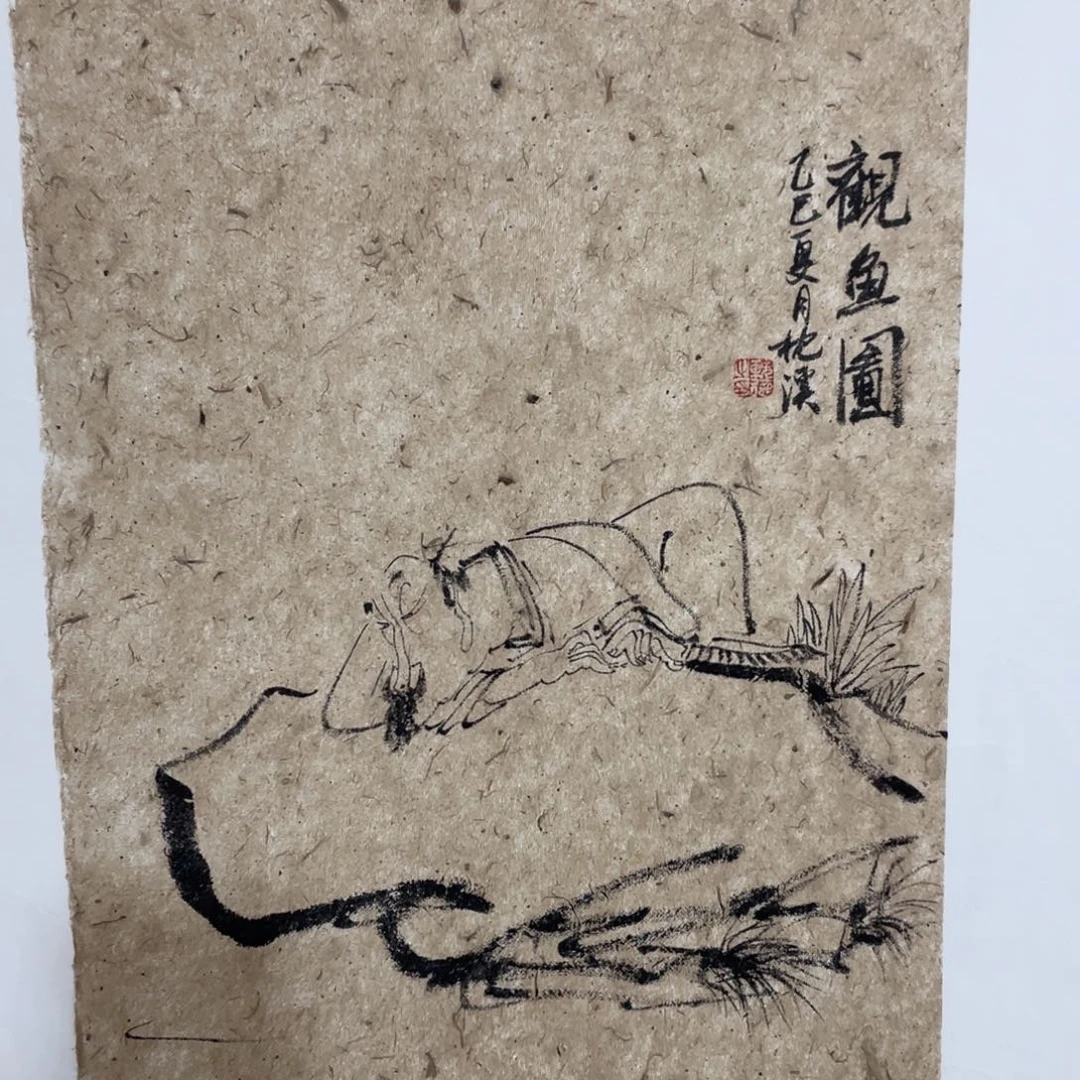 觀魚圖
乙巳夏月枕溪